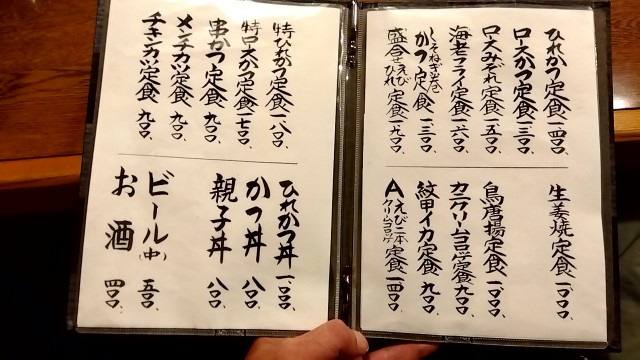 ひれかつ定食 一四〇〇、
ロースかつ定食 一三〇〇、
ロースみぞれ定食 一五〇〇、
海老フライ定食 一六〇〇、
しそねぎ巻かつ定食 一三〇〇、
盛合せえびひれ定食 一九〇〇、
生姜焼定食 一〇〇〇、
鳥唐揚定食 一〇〇〇、
カニクリームコロッケ定食 九〇〇、
紋甲イカ定食 九〇〇、
Aえび二本クリームコロッケ定食 一四〇〇、
特ひれかつ定食 一八〇〇、
特ロースかつ定食 一七〇〇、
串かつ定食 九〇〇、
メンチカツ定食 九〇〇、
チキンカツ定食 九〇〇、
ひれかつ丼 一〇〇〇、
かつ丼 八〇〇、
親子丼 八〇〇、
ビール(中) 五〇〇、
お酒 四〇〇、